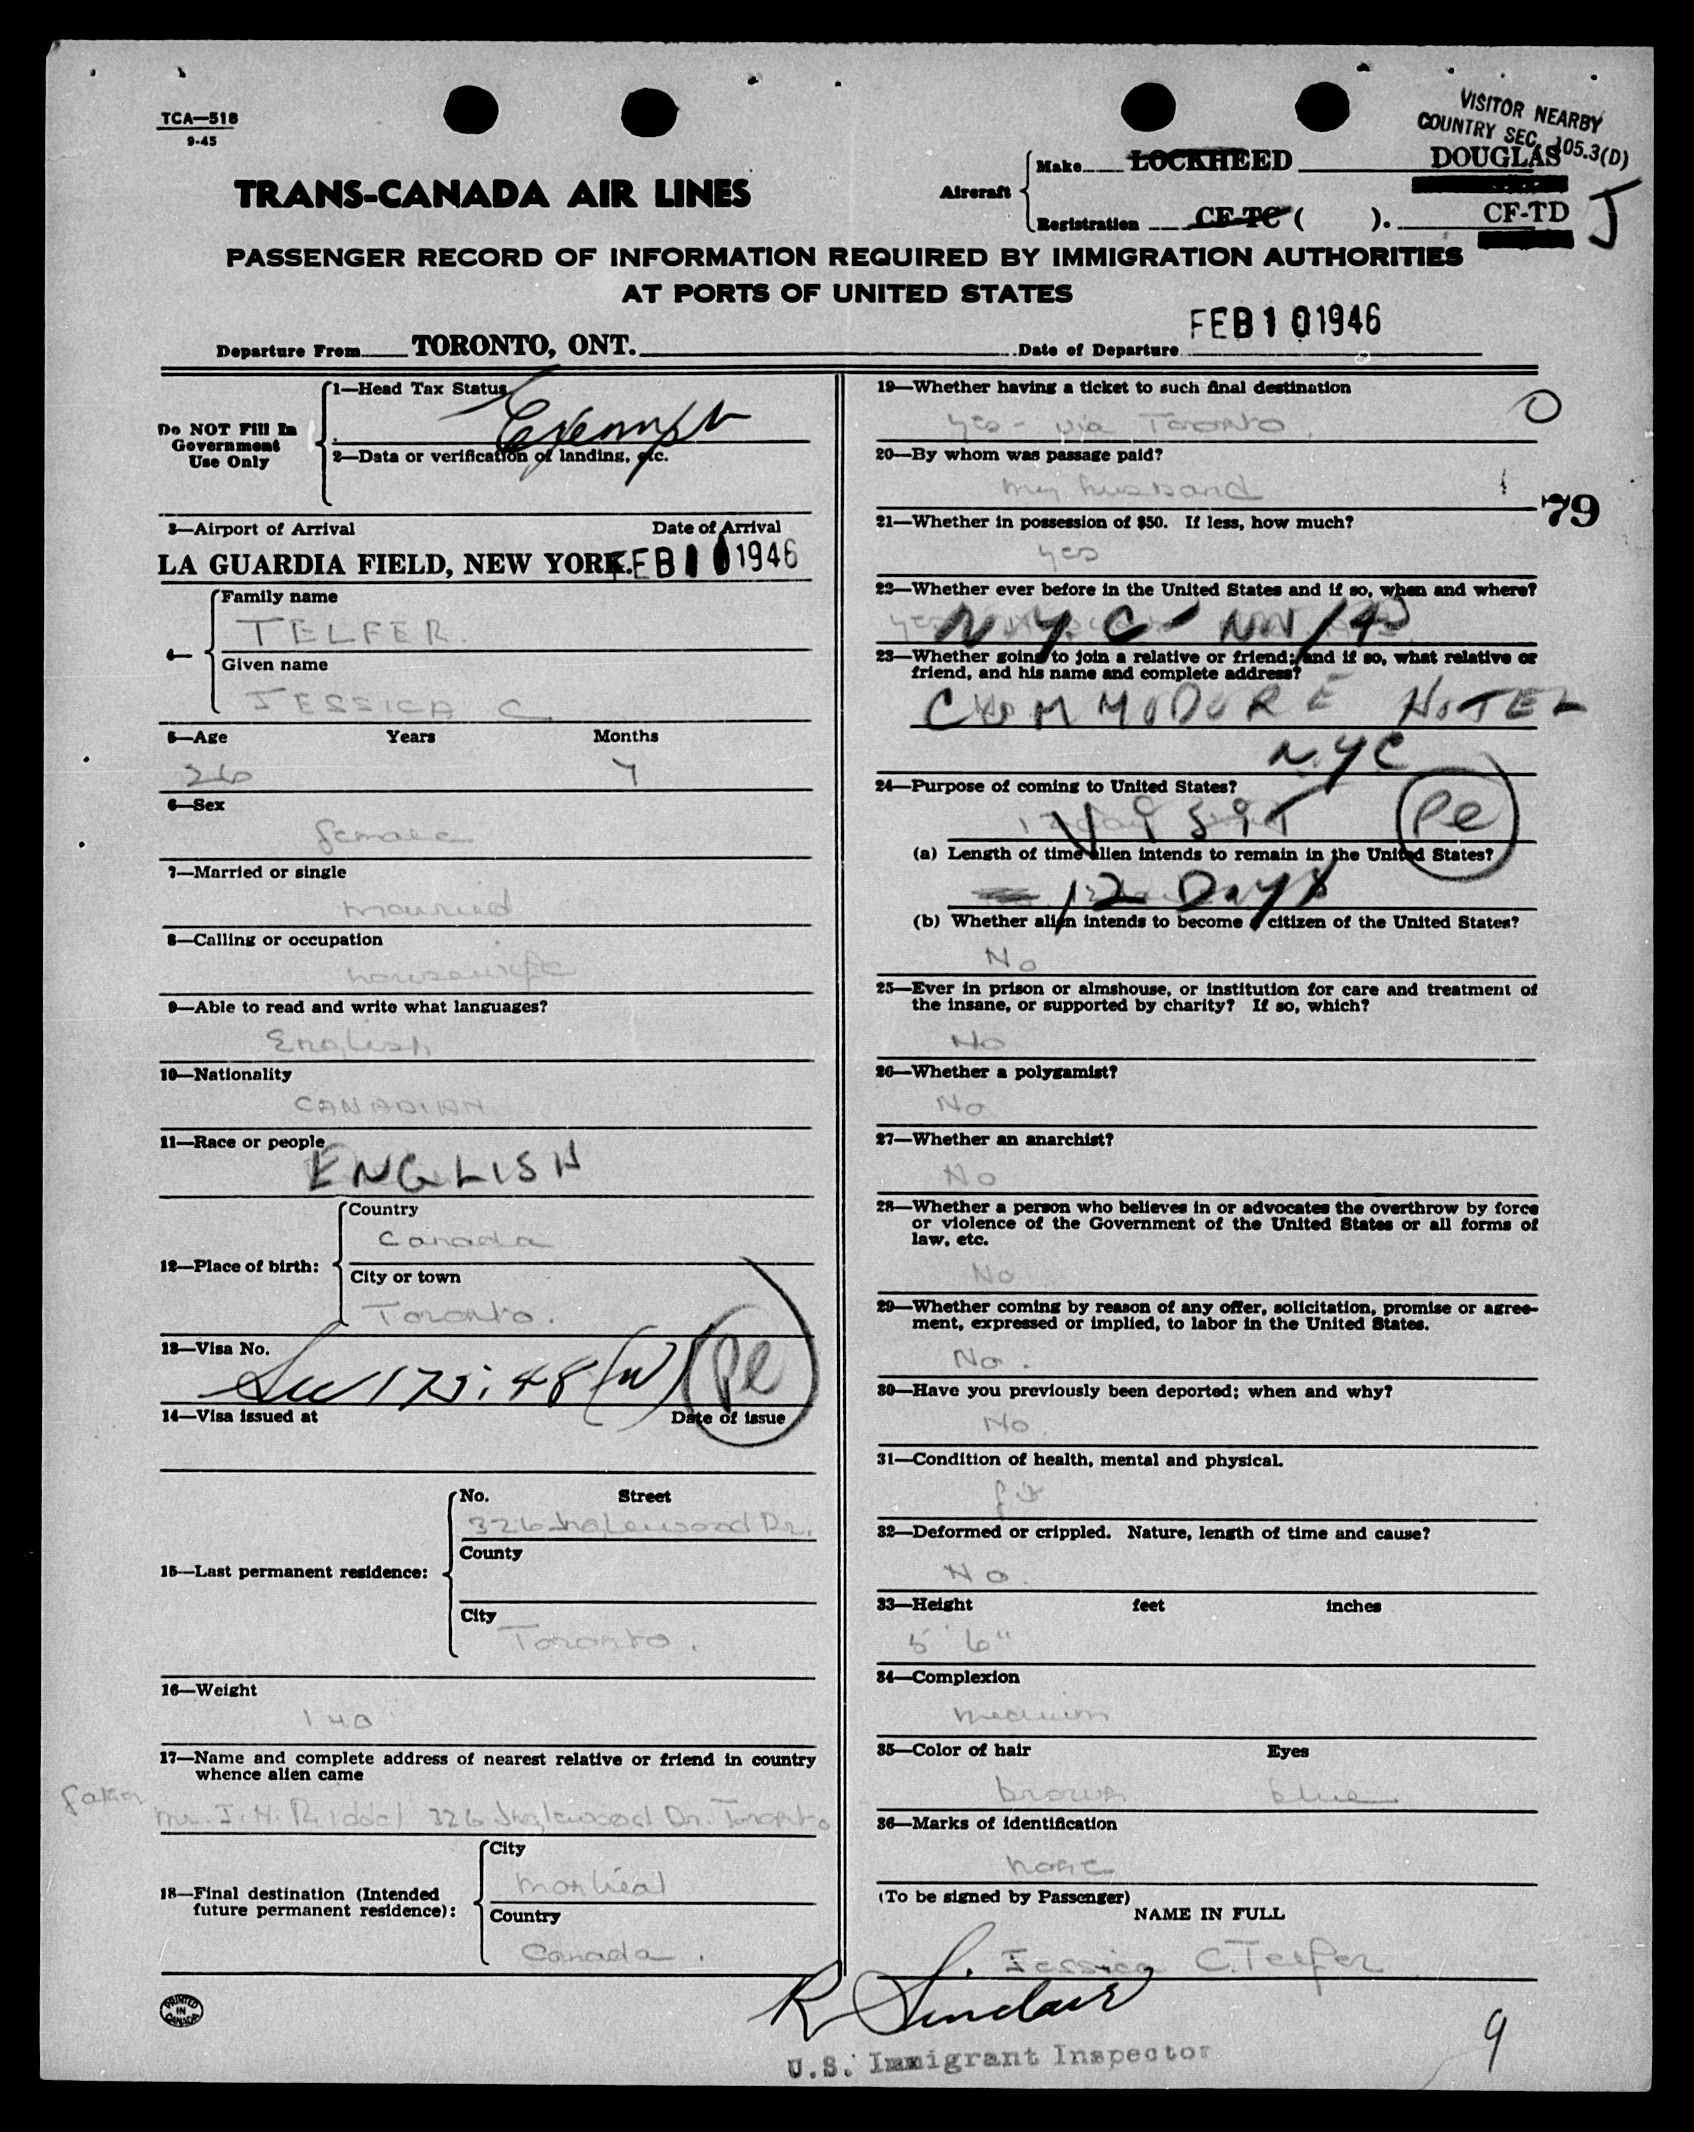 TCA—518
9-45
VISITOR NEARBY
COUNTRY SEC. 105.3(D)
TRANS-CANADA AIR LINES
Aircraft
Make LOCKHEED DOUGLAS
Registration CF-TC ( ). CF-TD J
PASSENGER RECORD OF INFORMATION REQUIRED BY IMMIGRATION AUTHORITIES
AT PORTS OF UNITED STATES
FEB 10 1946
Departure From TORONTO, ONT. Date of Departure
Do NOT Fill In
Government
Use Only
1—Head Tax Status
Exempt
2—Data or verification of landing, etc.
3—Airport of Arrival Date of Arrival
LA GUARDIA FIELD, NEW YORK. FEB 10 1946
4—
Family name
TELFER.
Given name
JESSICA C
5—Age Years Months
26 7
6—Sex
female
7—Married or single
married
8—Calling or occupation
housewife
9—Able to read and write what languages?
English
10—Nationality
CANADIAN
11—Race or people
ENGLISH
12—Place of birth:
Country
Canada
City or town
Toronto.
13—Visa No.
Sec 175.48 (w) Pe
14—Visa issued at Date of issue
15—Last permanent residence:
No. Street
326 Inglewood Dr.
County
City
Toronto.
16—Weight
140
17—Name and complete address of nearest relative or friend in country
whence alien came
father
Mr. J. H. Riddel 326 Inglewood Dr. Toronto
18—Final destination (Intended
future permanent residence):
City
Montreal
Country
Canada.
PRINTED
IN
CANADA
19—Whether having a ticket to such final destination
yes - via Toronto. O
20—By whom was passage paid?
my husband
79
21—Whether in possession of $50. If less, how much?
yes
22—Whether ever before in the United States and if so, when and where?
yes NYC - NOV/45
23—Whether going to join a relative or friend; and if so, what relative or
friend, and his name and complete address?
COMMODORE HOTEL
NYC
24—Purpose of coming to United States?
VISIT Pe
(a) Length of time alien intends to remain in the United States?
12 Days
(b) Whether alien intends to become a citizen of the United States?
No
25—Ever in prison or almshouse, or institution for care and treatment of
the insane, or supported by charity? If so, which?
No
26—Whether a polygamist?
No
27—Whether an anarchist?
No
28—Whether a person who believes in or advocates the overthrow by force
or violence of the Government of the United States or all forms of
law, etc.
No
29—Whether coming by reason of any offer, solicitation, promise or agree-
ment, expressed or implied, to labor in the United States.
No.
30—Have you previously been deported; when and why?
No.
31—Condition of health, mental and physical.
fit
32—Deformed or crippled. Nature, length of time and cause?
No.
33—Height feet inches
5' 6"
34—Complexion
medium
35—Color of hair Eyes
brown blue
36—Marks of identification
none
(To be signed by Passenger)
NAME IN FULL
Jessica C. Telfer
R Sinclair
U.S. Immigrant Inspector
9